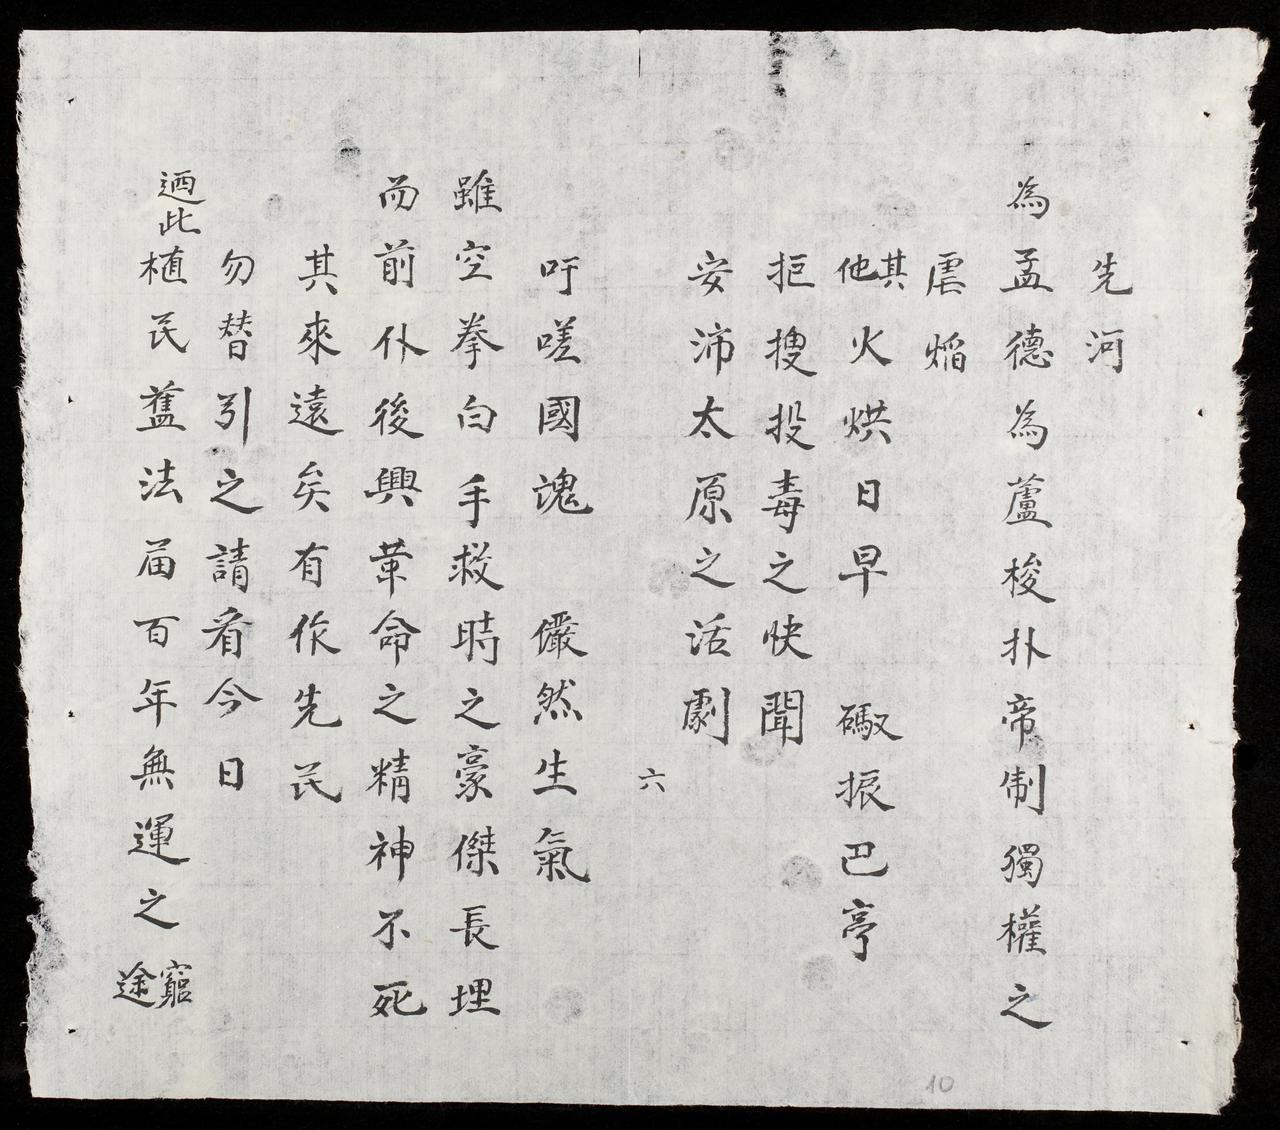 先河
為孟德為蘆梭扑帝制獨權之
虐焰
其他火烘日早 振巴亭
拒搜投毒之快聞
安沛太原之活劇
六
吁嗟國魂 儼然生氣
雖空拳白手救時之豪傑長埋
而前仆後興革命之精神不死
其來遠矣有作先民
勿替引之請看今日
迺此植民舊法届百年無運之窮途
10